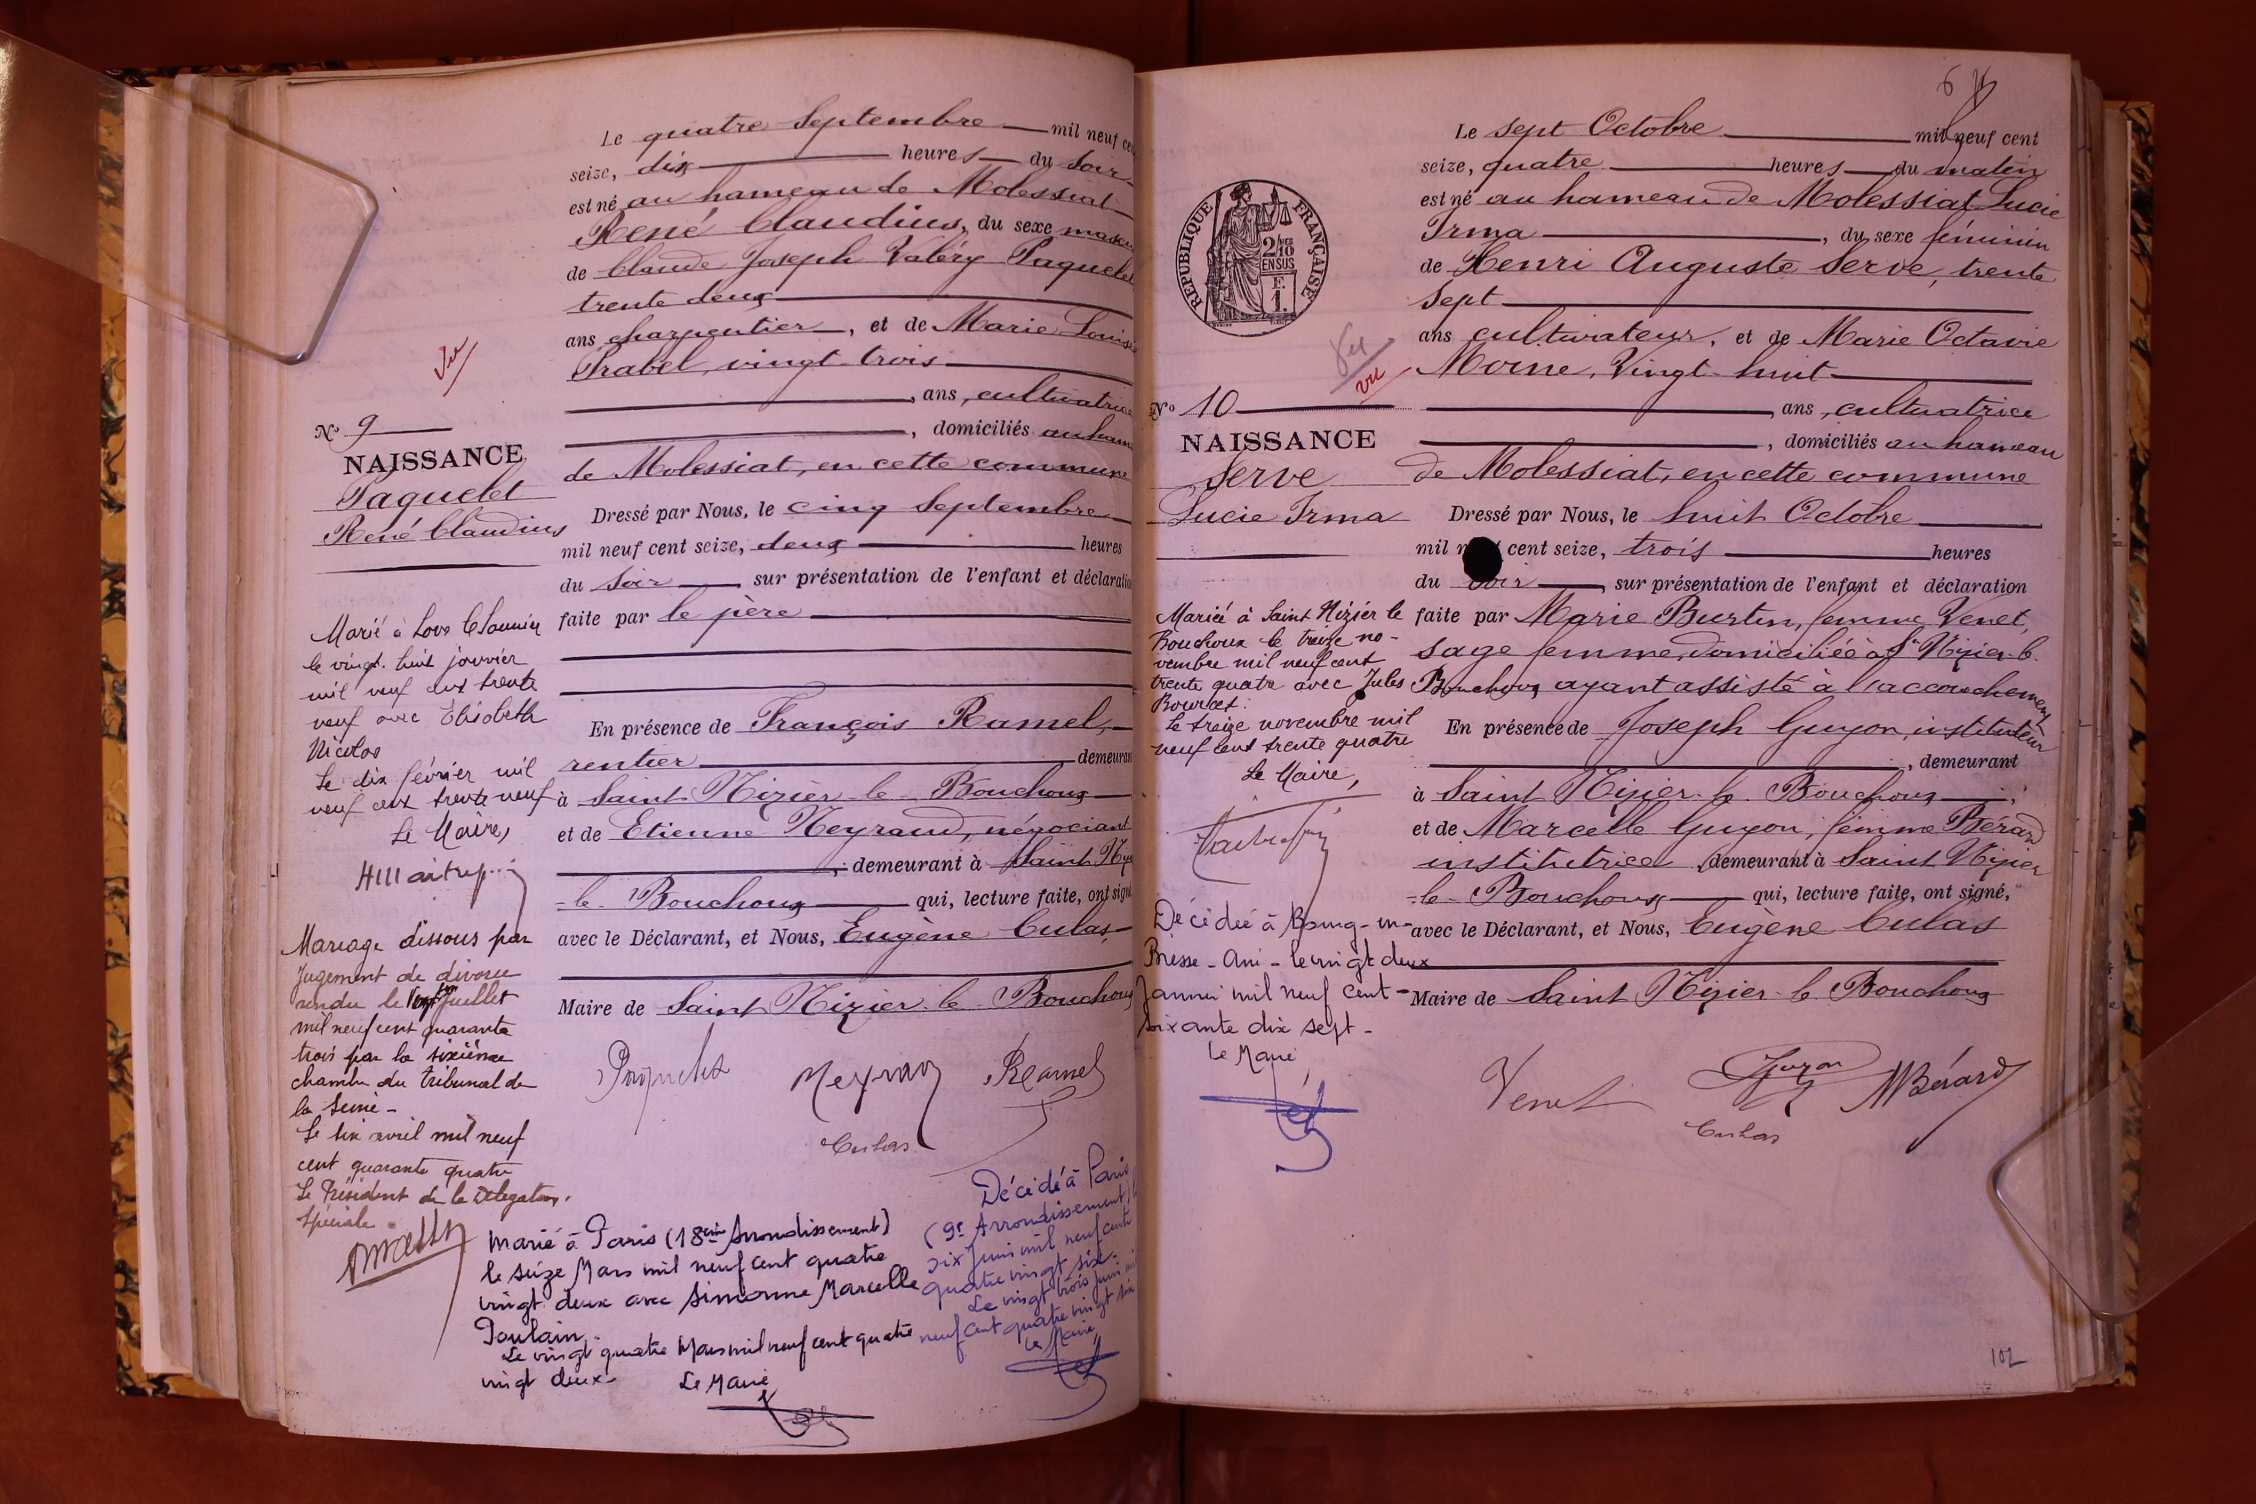 Le quatre Septembre mil neuf
seize, dix heures du soir
est né au hameau de Molessiat
René Claudius, du sexe
de Claude Joseph Valéry Paquelet
trente deux
ans charpentier, et de Marie Louise
Prabel, vingt-trois
ans, cultivatrice
domiciliés au
de Molessiat, en cette commune
Vu
N° 9
NAISSANCE
Paquelet
René Claudius
Dressé par Nous, le cinq Septembre
mil neuf cent seize, deux heures
du soir sur présentation de l'enfant et déclaration
faite par le père
En présence de François Ramel,
rentier demeurant
à Saint Nizier-le-Bouchoux
et de Etienne Neyraud, négociant
demeurant à Saint
-le-Bouchoux qui, lecture faite, ont signé
avec le Déclarant, et Nous, Eugène Culas,
Maire de Saint Nizier-le-Bouchoux
Paquelet Neyraud Ramel
Culas
Marié à Lons le Saunier
le vingt-huit janvier
mil neuf cent trente
neuf avec Elisabeth
Nicolas
Le dix février mil
neuf cent trente neuf
Le Maire,
Mariage dissous par
Jugement de divorce
rendu le Juillet
mil neuf cent quarante
trois par la sixième
chambre du tribunal de
la Seine -
Le six avril mil neuf
cent quarante quatre
Le Président de la Délégation
Spéciale
Marié à Paris (18eme Arrondissement)
le seize Mars mil neuf cent quatre
vingt deux avec Simonne Marcelle
Poulain.
Le vingt quatre Mars mil neuf cent quatre
vingt deux
Le Maire
Décédé à Paris
(9e Arrondissement)
six Juin mil neuf cent
quatre vingt six
Le vingt trois Juin
neuf cent quatre vingt six
Le Maire
6
Le sept Octobre mil neuf cent
seize, quatre heures du matin
est né au hameau de Molessiat Lucie
Irma, du sexe féminin
de Henri Auguste Serve, trente
sept
ans cultivateur, et de Marie Octavie
Moine, Vingt-huit
ans, cultivatrice
, domiciliés au hameau
de Molessiat, en cette commune
RÉPUBLIQUE FRANÇAISE
2/10
EN SUS
E.
1.
Vu
vu
N° 10
NAISSANCE
Serve
Lucie Irma
Dressé par Nous, le huit Octobre
mil cent seize, trois heures
du soir, sur présentation de l'enfant et déclaration
faite par Marie Burtin, femme Venet,
sage femme, domiciliée à St Nizier-le-
Bouchoux ayant assisté à l'accouchement
En présence de Joseph Guyon, instituteur
, demeurant
à Saint Nizier-le-Bouchoux
et de Marcelle Guyon, femme Bérard
institutrice demeurant à Saint Nizier
-le-Bouchoux qui, lecture faite, ont signé,
avec le Déclarant, et Nous, Eugène Culas
Maire de Saint Nizier-le-Bouchoux
Venet Guyon MBérard
Culas
Mariée à Saint Nizier le
Bouchoux le treize no-
vembre mil neuf cent
trente quatre avec Jules
Le treize novembre mil
neuf cent trente quatre
Le Maire,
Décédée à Bourg-en-
Bresse - Ain - le vingt deux
Janvier mil neuf cent -
soixante dix sept -
Le Maire
102